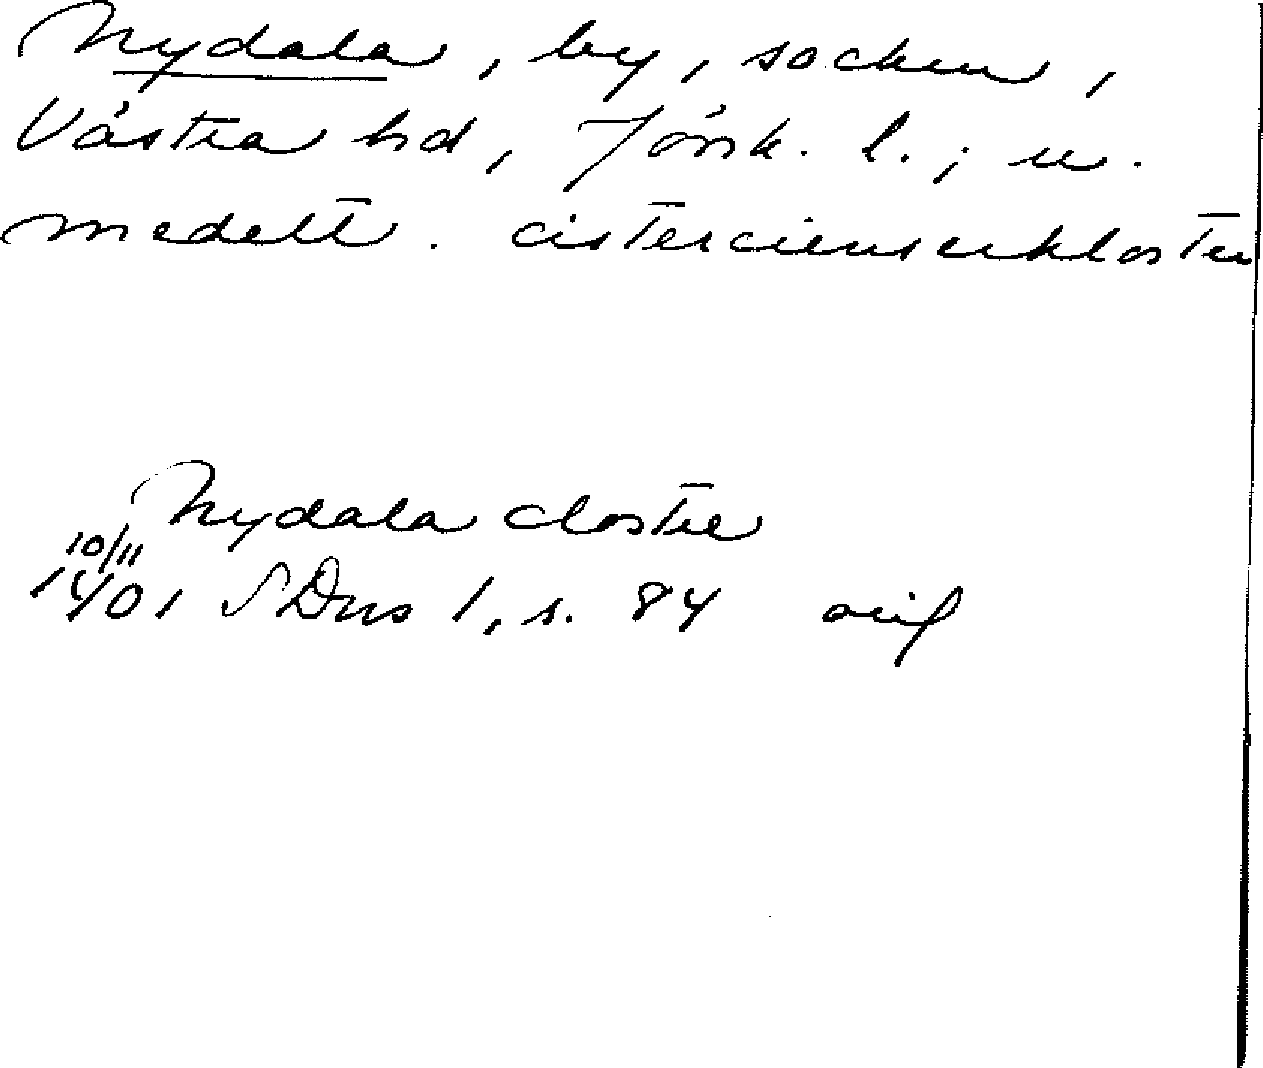 Nydala, by, socken,
Västra hd, Jönk. l.; u.
medelt. cistercienserkloster
Nydala closter
10/11
1401 SDns 1, s. 84 orig